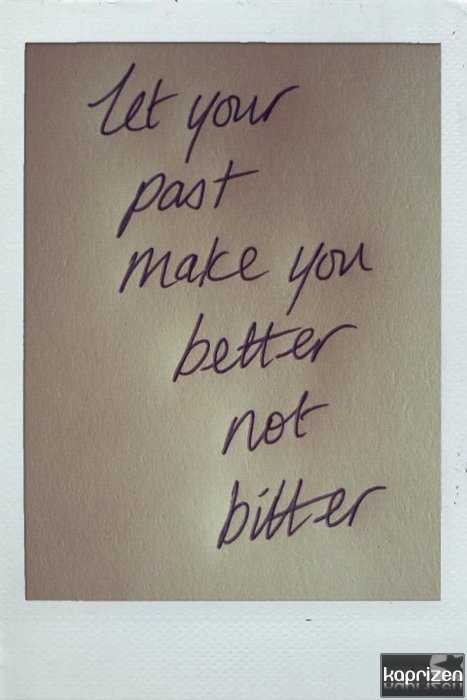 let your
past
make you
better
not
bitter
kaprizen